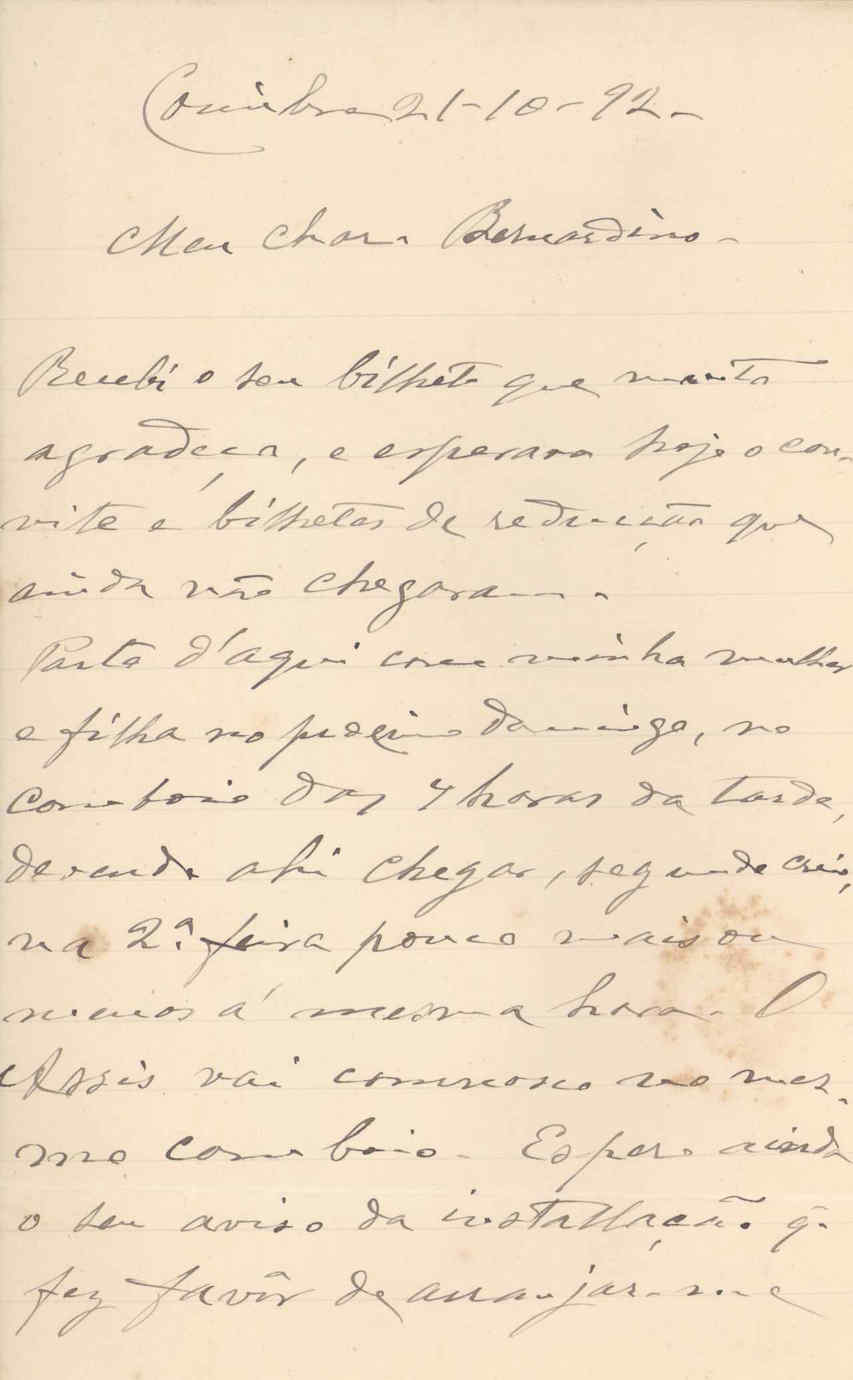 Coimbra 21-10-92-
Meu charo Bernardino-
Recebi o seu bilhete que muito
agradeço, e esperava hoje o con-
vite e bilhetes de reducção que
ainda não chegaram.
Parto d'aqui com minha mulher
e filha no proximo domingo, no
comboio das 4 horas da tarde,
devendo ahi chegar, segundo creio,
na 2ª. feira pouco mais ou
menos á mesma hora. O
Assis vai comnosco no mes-
mo comboio. Espero ainda
o seu aviso da installação q.
fez favôr de arranjar-me